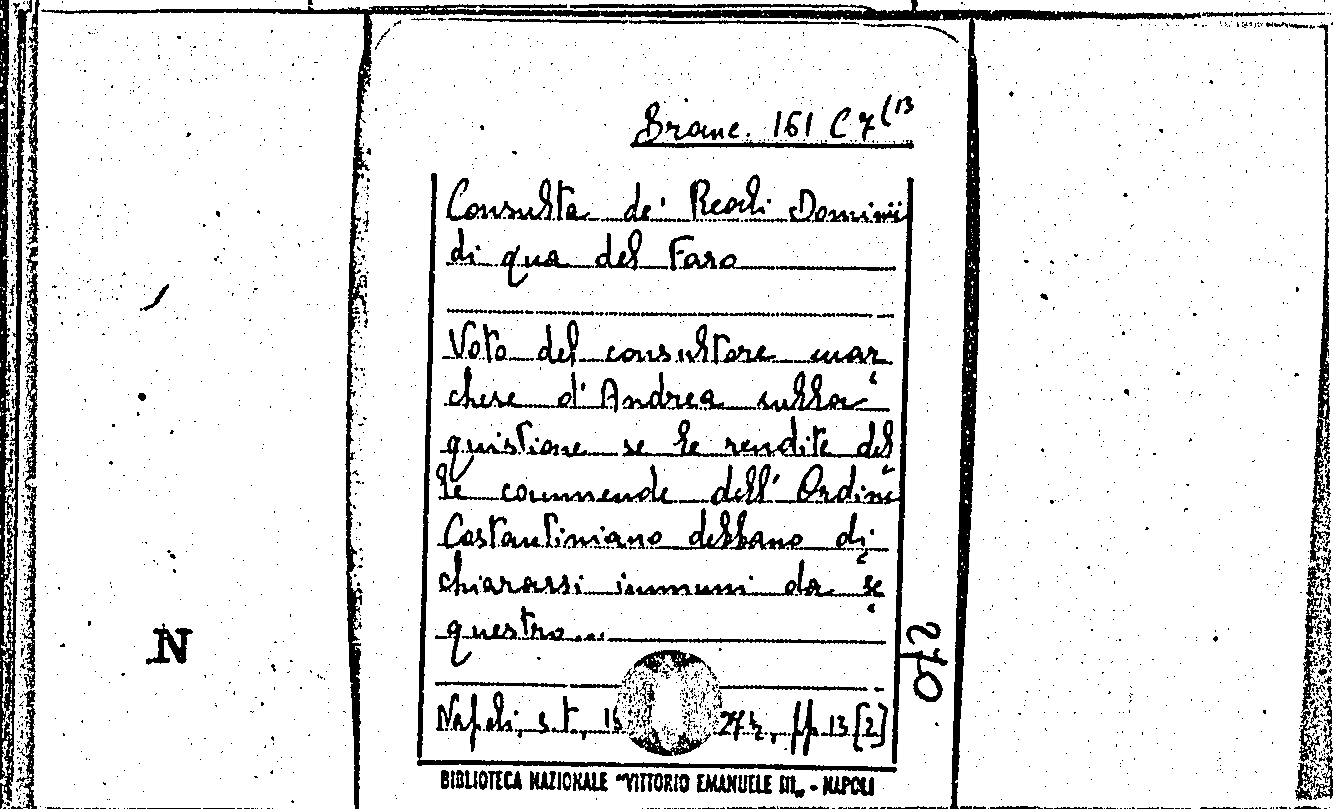 Branc. 161 C 7(13
Consulta de' Reali Dominii
di qua del Faro
Voto del consultore mar
chese d'Andrea sulla
quistione se le rendite del
le commende dell'Ordine
Costantiniano debbano di
chiararsi immuni da se
questro...
Napoli, s.t., 18 pp. 13 [2]
270
N
BIBLIOTECA NAZIONALE "VITTORIO EMANUELE III„ - NAPOLI